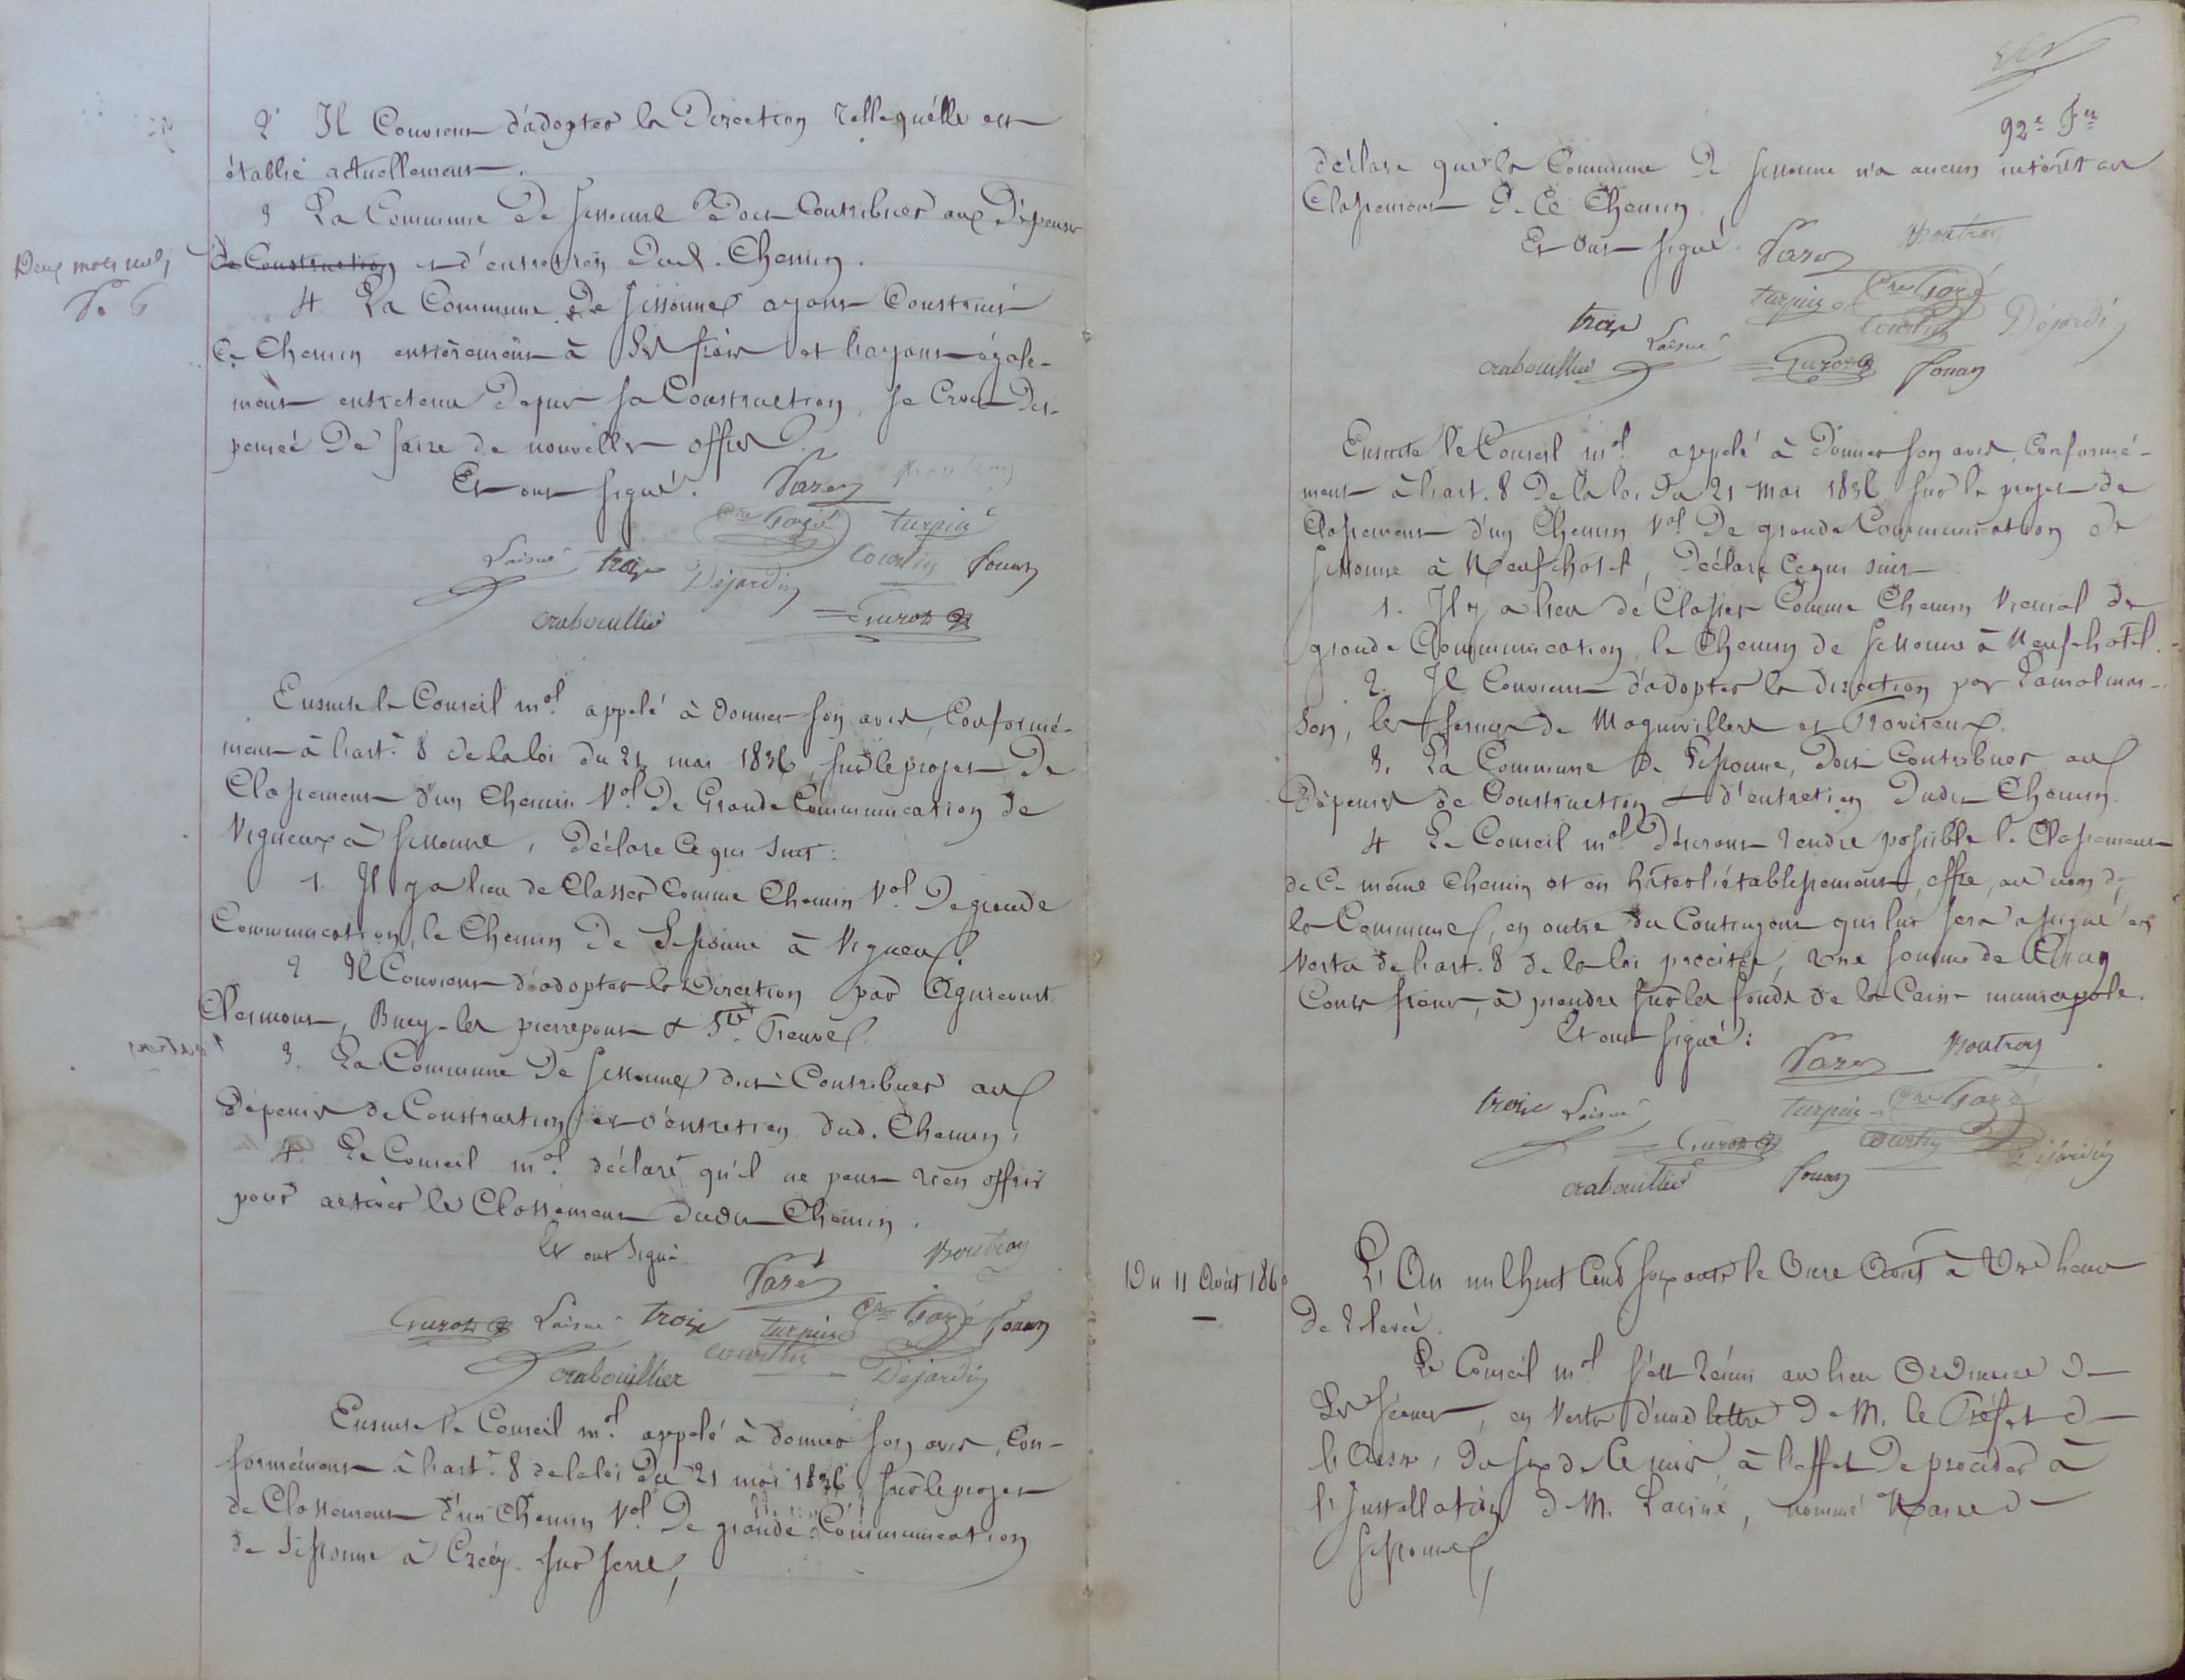 2° Il Convient d'adopter la Direction telle qu'elle est
établie actuellement.
3 La Commune De Sissonne Doit Contribuer aux Dépenses
Deux mots nuls
de Construction et d'entretien Dud. Chemin.
4 La Commune De Sissonne ayant Construit
Ce Chemin entièrement à Ses frais et l'ayant égale-
ment entretenu Depuis Sa Construction, Se Croit Dis-
pensée De faire de nouvelles offres.
Et ont Signé.
turpin
Laisné troix Courtin fouan
Déjardin
Crabouillier
Ensuite le Conseil mal. appelé à donner Son avis, Conformé-
ment à l'art. 8 de la loi du 21 mai 1836, Sur le projet De
Classement d'un Chemin Val. De Grande Communication de
Vigneux à Sissonne, Déclare Ce qui Suit:
1. Il y a lieu de Classer Comme Chemin Val. De grande
Communication, le Chemin De Sissonne à Vigneux.
2 Il Convient d'adopter la Direction par
Clermont, Bucy-les pierrepont & Ste. Preuve.
3. La Commune De Sissonne doit Contribuer aux
Dépenses de Construction et d'entretien dud. Chemin,
4. Le Conseil mal. déclare qu'il ne peut rien offrir
pour activer le Classement dudit Chemin.
Et ont Signé.
Boutroy
Laisné troix turpin fouan
Courtin
Crabouillier Déjardin
Ensuite le Conseil mal. appelé à donner Son avis, Con-
formément à l'art. 8 de la loi du 21 mai 1836, Sur le projet
de Classement d'un Chemin Val. De grande Communication
de Sissonne à Crécy-Sur Serre,
92e Fet
déclare que la Commune De Sissonne n'a aucun intérêt au
Classement De Ce Chemin.
Et Ont Signé.
Boutroy
turpin
troix Laisné Courtin Déjardin
Crabouillier fouan
Ensuite le Conseil mal. appelé à Donner Son avis, Conformé-
ment à l'art. 8 De la loi Du 21 Mai 1836 Sur le projet de
Classement d'un Chemin Val. De grande Communication de
Sissonne à Neufchâtel, Déclare Ce qui suit
1. Il y a lieu de Classer Comme Chemin Vicinal de
grande Communication, le Chemin de Sissonne à Neufchâtel.
2. Il Convient d'adopter la direction par Lamalmai-
son, les fermes de Maquivillers et Proviseux.
3. La Commune de Sissonne, doit Contribuer aux
Dépenses de Construction & d'entretien Dudit Chemin.
4 Le Conseil mal. Désirant rendre possible le Classement
de Ce même Chemin et en hâter l'établissement, offre, au nom de
la Commune, en outre du Contingent qui lui Sera assigné en
Vertu de l'art. 8 de la loi précitée, Une Somme de Cinq
Cents francs, à prendre Sur les fonds de la Caisse municipale.
Et ont Signé:
Boutroy
troix Laisné turpin
Courtin Déjardin
Crabouillier fouan
Du 11 Août 1860
L'An mil huit Cent Soixante le Onze Août à Une heure
De relevée.
Le Conseil mal S'est réuni au lieu Ordinaire De
Ses Séances, en Vertu d'une lettre De M. le Préfet De
l'Aisne, Du Six de Ce mois, à l'effet De procéder à
l'Installation De M. Laisné, nommé Maire De
Sissonne,